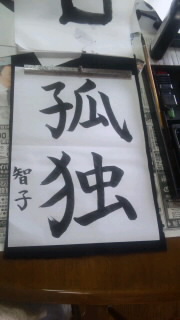 孤独
智子